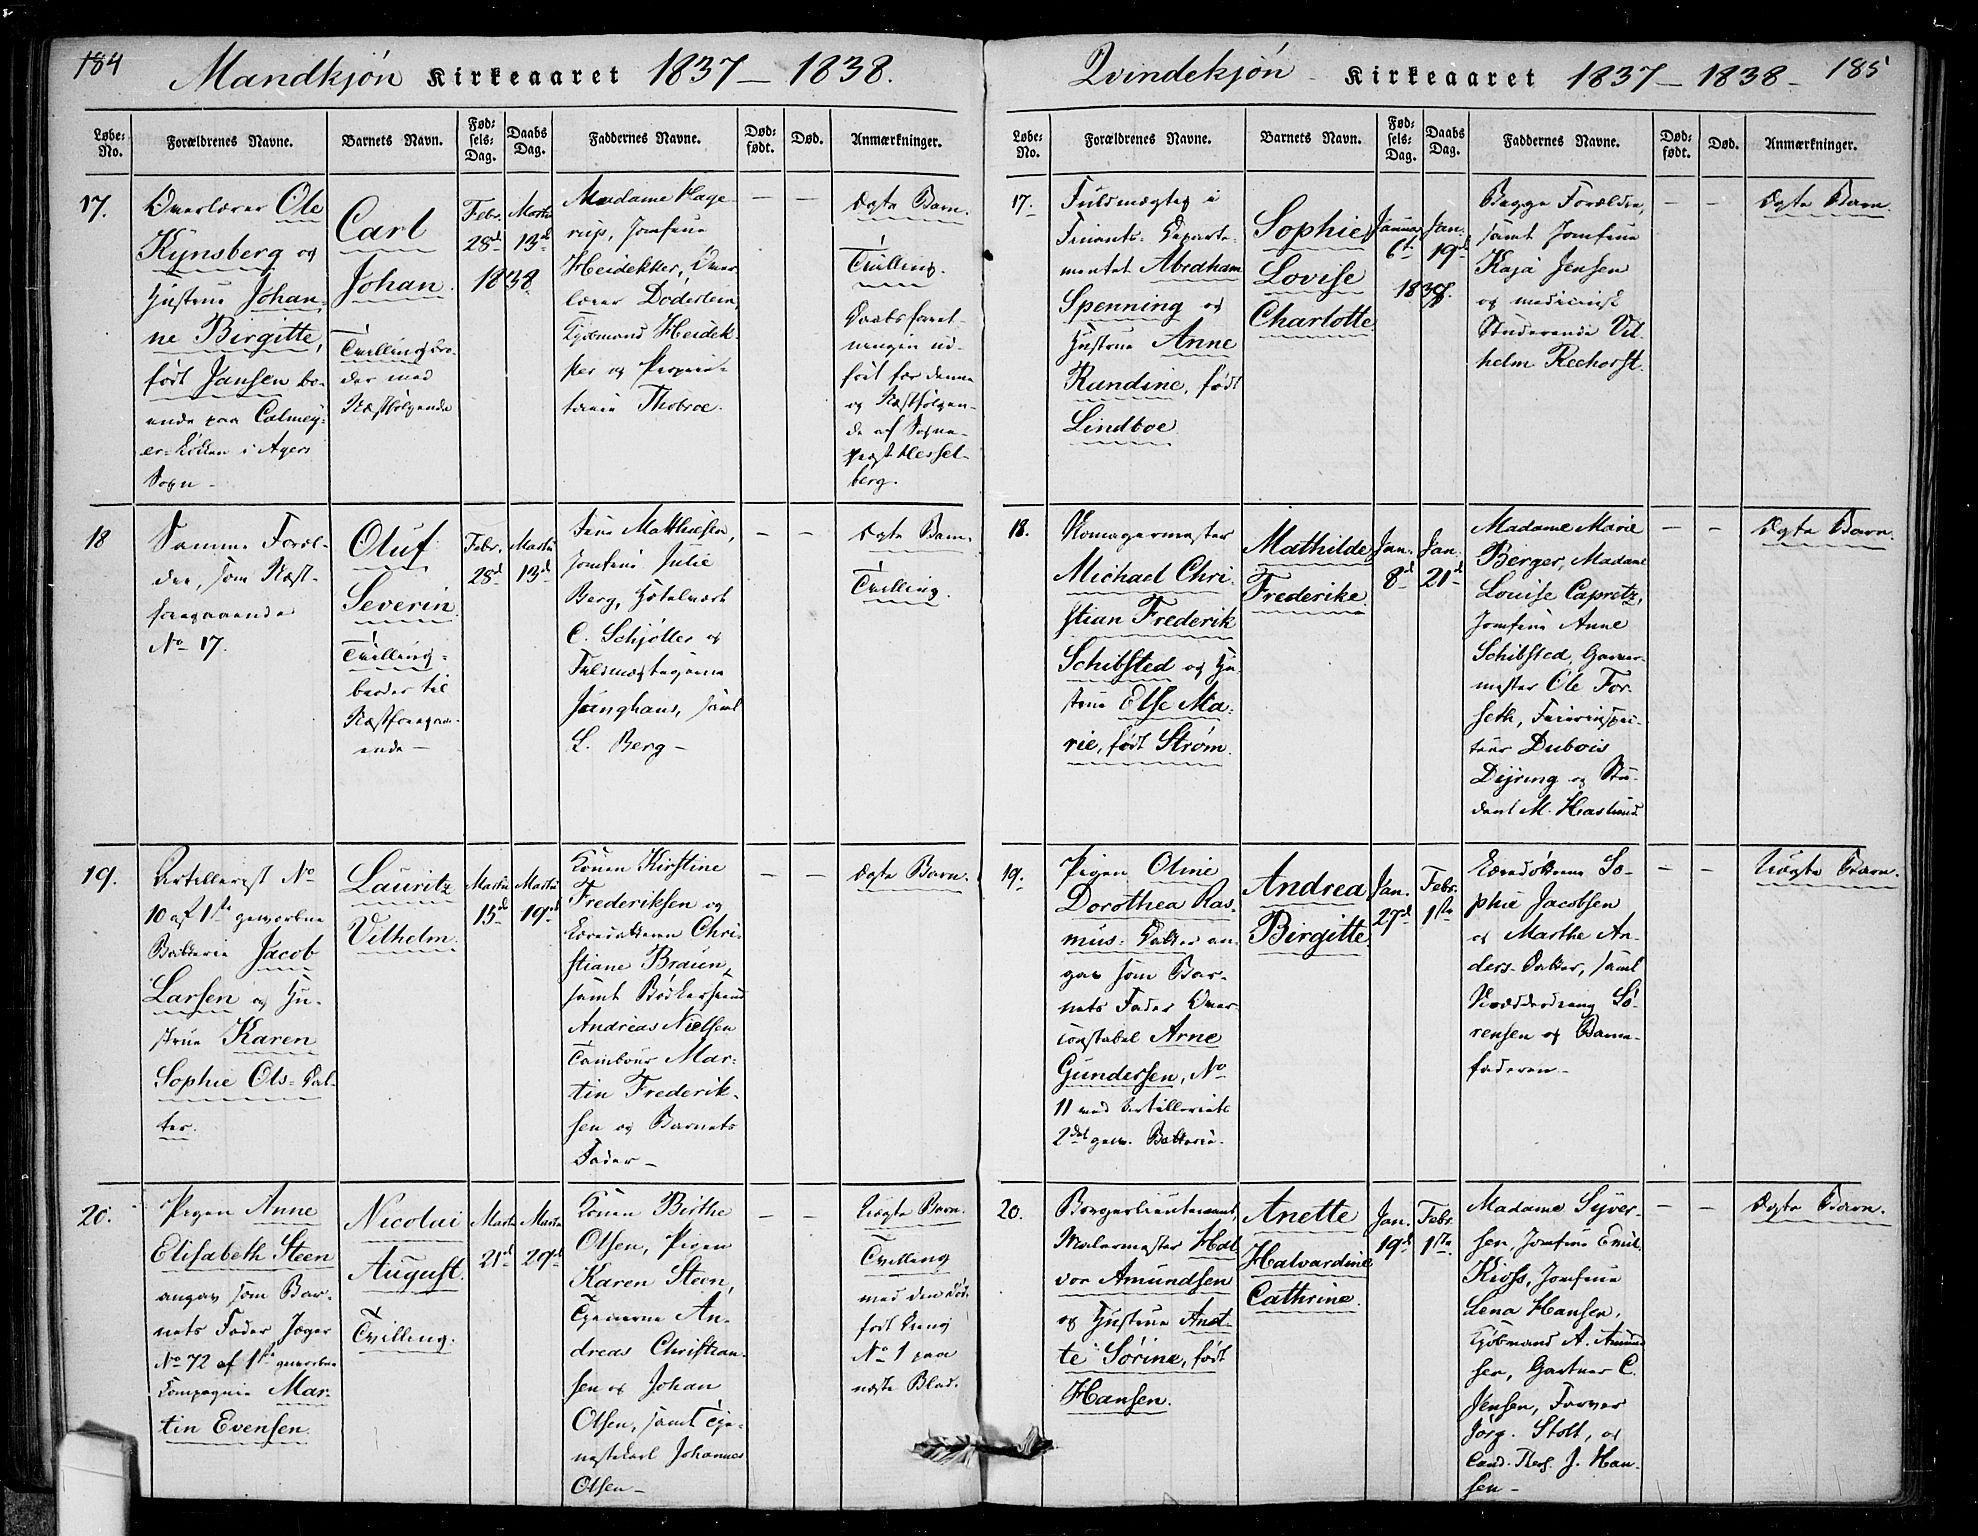 184
Mandkjøn Kirkeaaret 1837 — 1838.
Løbe-No.
Forældrenes Navne.
Barnets Navn.
Fødsels-Dag.
Daabs Dag.
Faddernes Navne.
Dødfødt.
Død.
Anmærkninger.
17.
Overlærer Ole
Kynsberg og
Hustrue Johan-
ne Birgitte,
født Jansen bo-
ende paa Calmey-
er-Løkken i Agers
Sogn -
Carl
Johan.
Tvillingbro-
der med
Næstfølgende
Febr.
28d
Martii
13d
1838
Madame Hage-
rup, Jomfrue
Heidekker, Over-
lærer Døderlein,
Kjøbmand Heidek-
ker og Proprie-
tair Thobroe.
— —
Ægte Barn.
Tvilling.
Daabsforret-
ningen ud-
ført for denne
og Næstfølgen-
de af Sogne-
præst Hessel-
berg.
18
Samme Foræl-
dre, som Næst-
foregaaende
No 17.
Oluf
Severin.
Tvilling-
broder til
Næstforegaa-
ende —
Febr.
28d
Martii
13d
Frue Mathiesen,
Jomfrue Julie
Berg, Hotelvært
C. Schjøller og
Fuldmægtigerne
Junghans, samt
L. Berg —
— —
Ægte Barn.
Tvilling.
19.
Artillerist No
10 af 1ste gevorbne
Batterie Jacob
Larsen og Hu-
strue Karen
Sophie Ols- Dat-
ter.
Lauritz
Vilhelm.
Martii
15d
Martii
19d
Konen Kirstine
Frederiksen og
Chri-
stiane Braun,
samt Bødkersvend
Andreas Nielsen
Tambour Mar-
tin Frederik-
sen og Barnets
Fader —
— —
Ægte Barn.
20.
Pigen Anne
Elisabeth Steen
angav som Bar-
nets Fader Jæger
No 72 af 1ste gevorbne
Compagnie Mar-
tin Evensen.
Nicolai
August.
Tvilling.
Martii
21d
Martii
29d
Konen Birthe
Olsen, Pigen
Karen Steen,
An-
dreas Christian-
sen og Johan
Olsen, samt Tje-
nestekarl Johannes
Olsen —
— —
Uægte Barn.
Tvilling
med den død-
født Dreng
No 1 paa
næste Blad.
Qvindekjøn — Kirkeaaret 1837 — 1838 —
185
Løbe-No.
Forældrenes Navne.
Barnets Navn.
Fødsels-Dag.
Daabs Dag.
Faddernes Navne.
Dødfødt.
Død.
Anmærkninger.
17.
Fuldmægtig i
Finants- Departe-
mentet Abraham
Spenning og
Hustrue Anne
Randine, født
Lindboe
Sophie
Lovise
Charlotte.
Januar
6te
Jan.
19d
Begge Forældre,
samt Jomfrue
Kaja Jensen
og medicinsk
Studerende Vil-
helm Rechorst.
— —
Ægte Barn.
18.
Skomagermester
Michael Chri-
stian Frederik
Schibsted og Hu-
strue Else Ma-
rie, født Strøm.
Mathilde
Frederike.
Jan.
8d
Jan.
21d
Madame Marie
Berger, Madame
Louise Capretz,
Jomfrue Anne
Schibsted, Garver-
mester Ole For-
seth,
Dubois
Dejring og Stu-
dent M. Haslund
— —
Ægte Barn.
19.
Pigen Oline
Dorothea Ras-
mus- Datter an-
gav som Bar-
nets Fader Over-
constabel Arne
Gundersen, No
11 ved Artilleriets
2det gev. Batterie.
Andrea
Birgitte
Jan.
27d
Febr.
1ste
So-
phie Jacobsen
og Marthe An-
ders- Datter, samt
Skrædderdreng Sö-
rensen og Barne-
faderen —
— —
Uægte Barn.
20.
Borgerlieutenant,
Malermester Hal-
vor Amundsen
og Hustrue Anet-
te Sørine, født
Hansen.
Anette
Halvardine
Cathrine.
Jan.
19d
Febr.
1ste
Madame Syver-
sen, Jomfrue Emil.
Kioss, Jomfrue
Lena Hansen,
Kjøbmand A. Amund-
sen, Gartner C.
Jensen, Farver
Jörg. Stolt, og
Cand. Theol. J. Han-
sen —
— —
Ægte Barn.